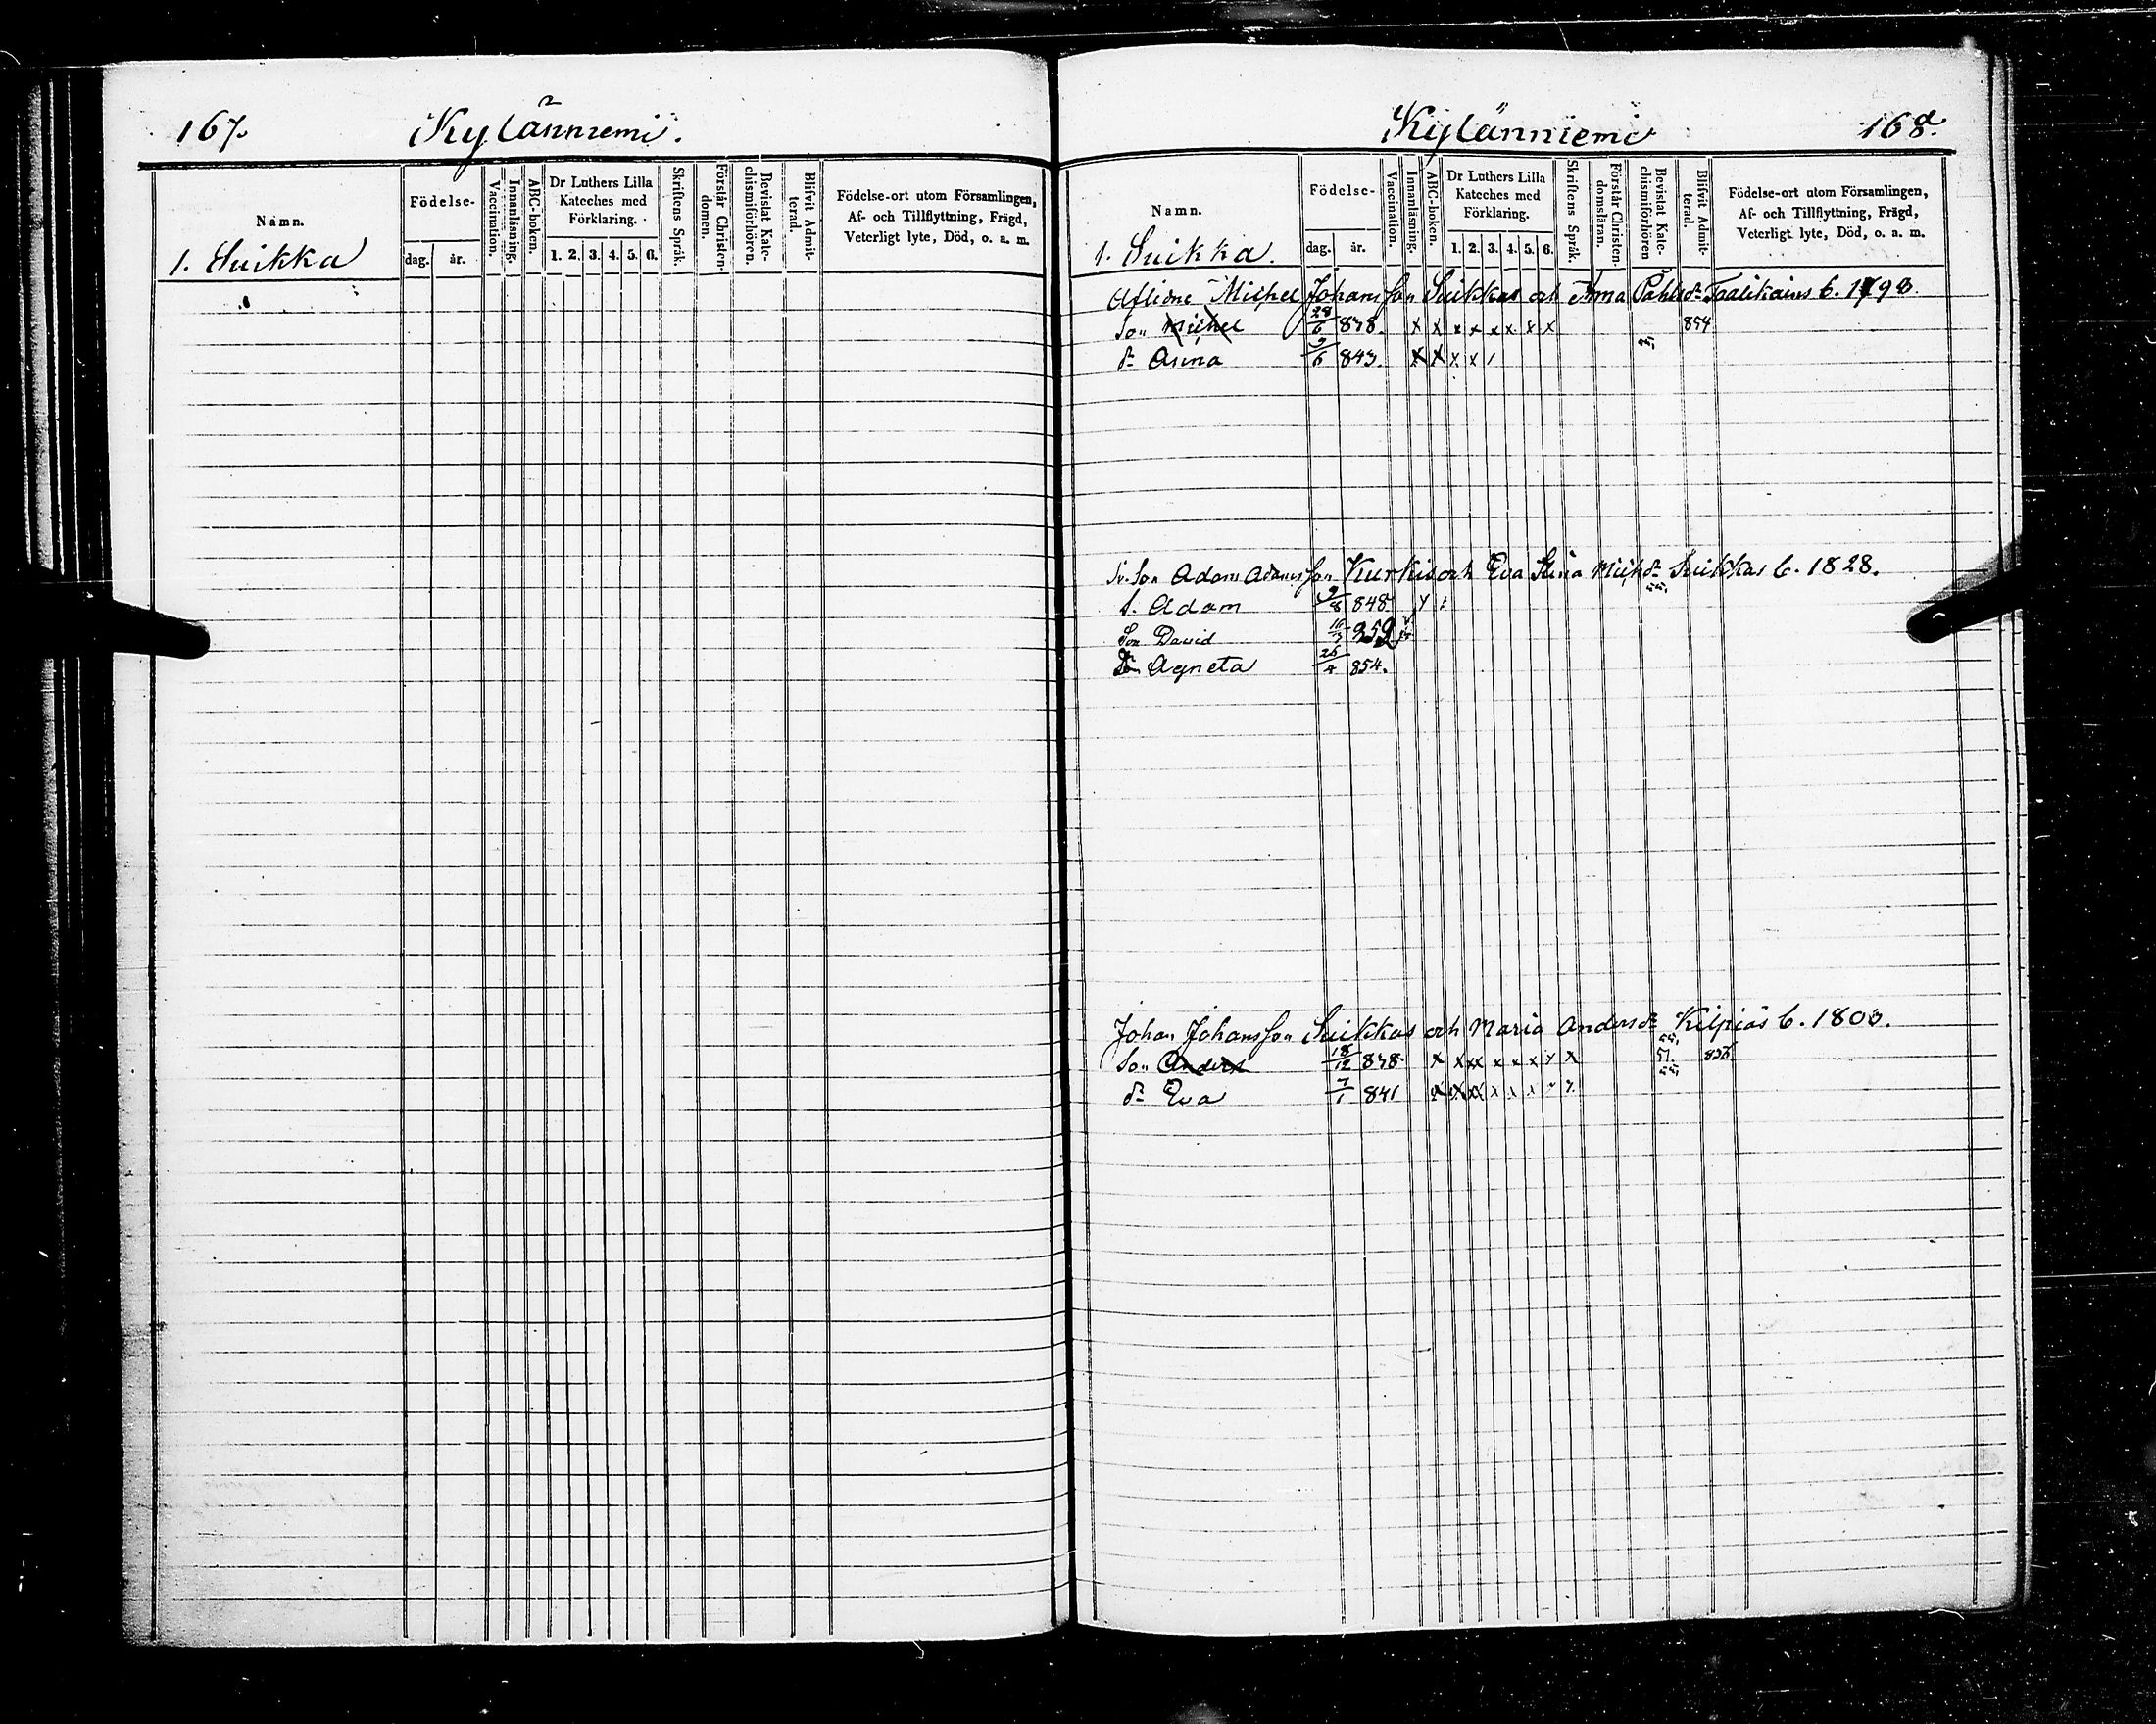 167.
Kylänniemi.
Namn.
Födelse-
dag. år.
Vaccination.
Innanläsning.
ABC-boken.
Dr Luthers Lilla Kateches med Förklaring.
1. 2. 3. 4. 5. 6.
Skriftens Språk.
Förstår Christen-domen.
Bevistat Kate-chismiförhören.
Blifvit Admit-terad.
Födelse-ort utom Församlingen,
Af- och Tillflyttning, Frägd,
Veterligt lyte, Död, o. a. m.
1. Suikka
Kylänniemi
168.
Namn.
Födelse-
dag. år.
Vaccination.
Innanläsning.
ABC-boken.
Dr Luthers Lilla Kateches med Förklaring.
1. 2. 3. 4. 5. 6.
Skriftens Språk.
Förstår Christen-domsläran.
Bevistat Kate-chismiförhören
Blifvit Admit-terad.
Födelse-ort utom Församlingen,
Af- och Tillflyttning, Frägd,
Veterligt lyte, Död, o. a. m.
1. Suikka.
Aflidne Michel Johansson Suikkas och Anna Påhls dr Taalikains b. 1798
Son Michel 28/6 838. x x x x x x x x 854
dr Anna 9/6 843. x x x x /
Sv. Son Adam Adamsson Kurkis och Eva Stina Michdr Suikkas b. 1828.
S. Adam 9/8 848
Son David 852
dr Agneta 26/4 854.
Johan Johansson Suikkas och Maria Andersdr Kilpiäs b. 1800.
Son Anders 18/12 838 x x xx x x x x x 51. 856
dr Eva 7/1 841 x x x x x x